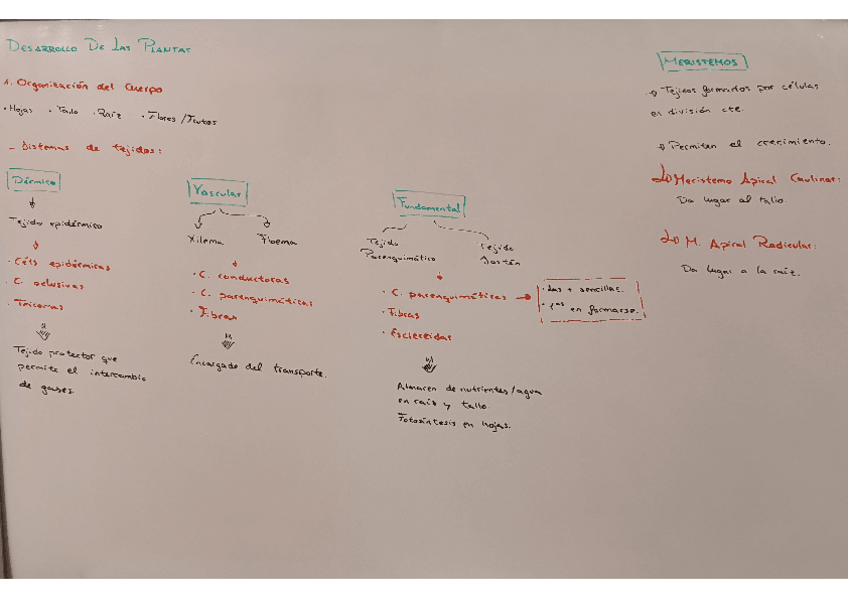 DESARROLLO DE LAS PLANTAS
1. Organización del Cuerpo
· Hojas · Tallo · Raíz · Flores / Frutos
- Sistemas de tejidos:
Dérmico
Tejido epidérmico
· Céls epidérmicas
· C. oclusivas
· Tricomas
Tejido protector que
permite el intercambio
de gases
Vascular
Xilema Floema
· C. conductoras
· C. parenquimáticas
· Fibras
Encargado del transporte.
Fundamental
Tejido
Parenquimático
Tejido
Sostén
· C. parenquimáticas
· Fibras
· Esclereidas
· Las + sencillas.
· 1ªs en formarse.
Almacen de nutrientes/agua
en raíz y tallo.
Fotosíntesis en hojas.
MERISTEMOS
Tejidos formados por células
en división cte.
Permiten el crecimiento.
Meristemo Apical Caulinar:
Da lugar al tallo.
M. Apical Radicular:
Da lugar a la raíz.